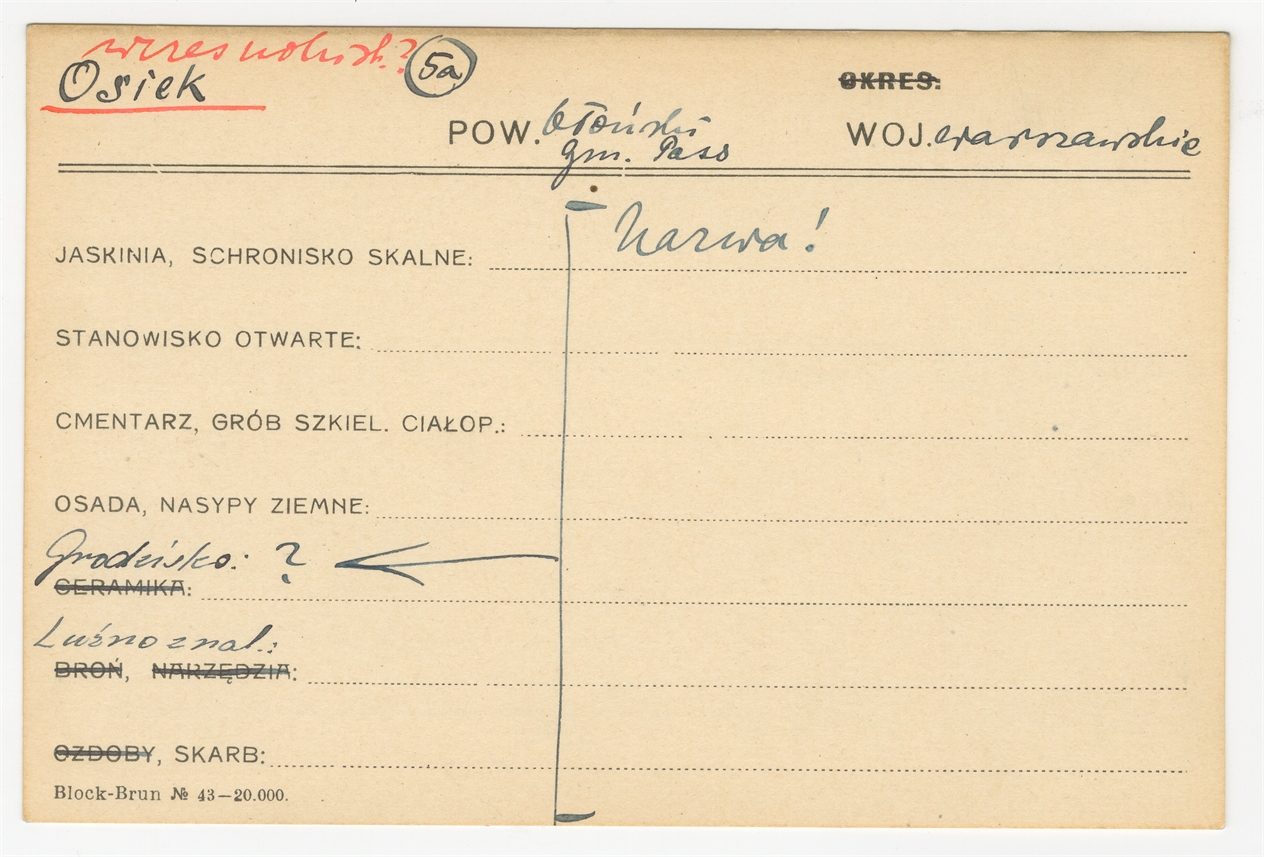 wczesnohist.?
Osiek
5a
OKRES:
POW. błoński WOJ. warszawskie
gm. Pass
Nazwa!
JASKINIA, SCHRONISKO SKALNE:
STANOWISKO OTWARTE:
CMENTARZ, GRÓB SZKIEL. CIAŁOP.:
OSADA, NASYPY ZIEMNE:
Grodzisko: ?
CERAMIKA:
Luźno znal.:
BROŃ, NARZĘDZIA:
OZDOBY, SKARB:
Block-Brun № 43—20.000.